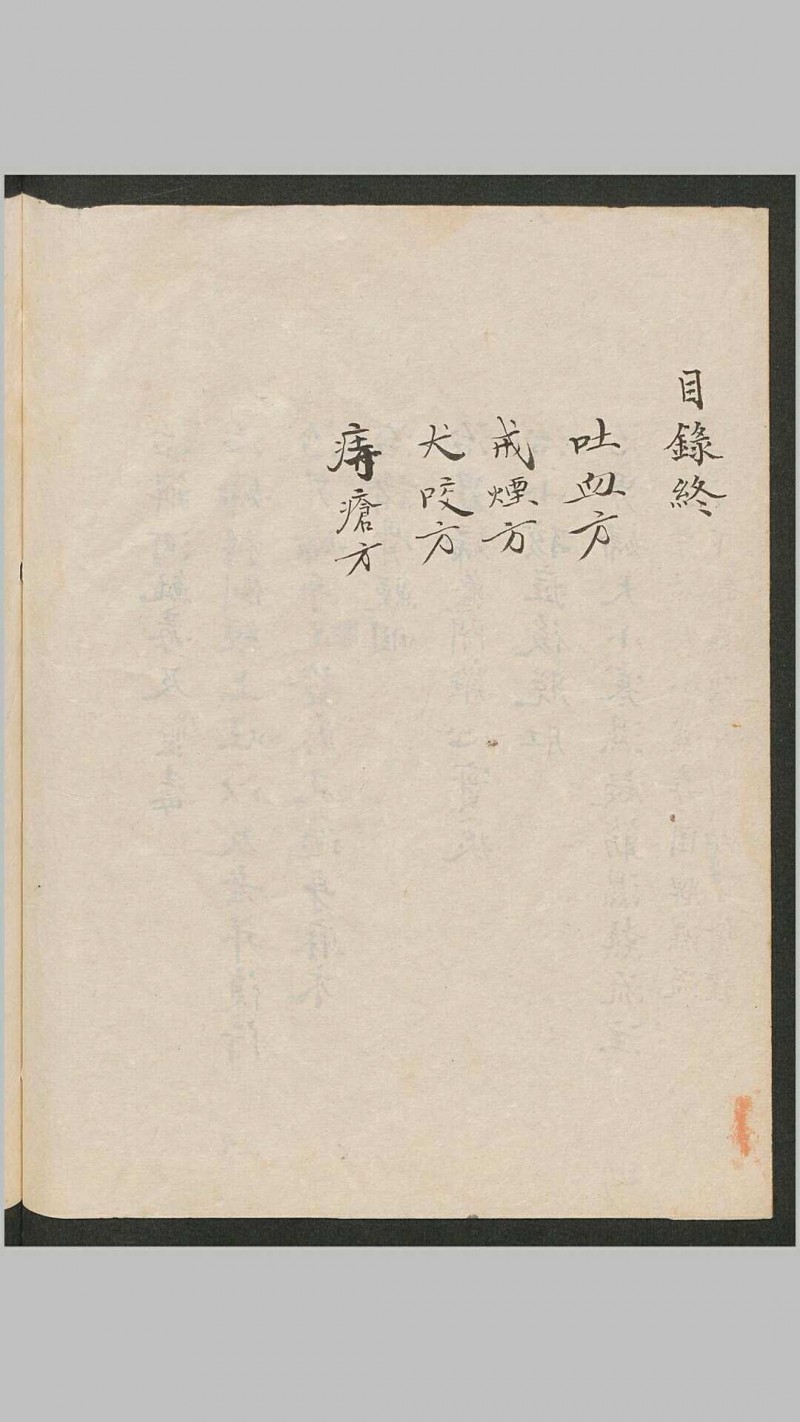 目錄終
吐血方
戒煙方
犬咬方
痔瘡方